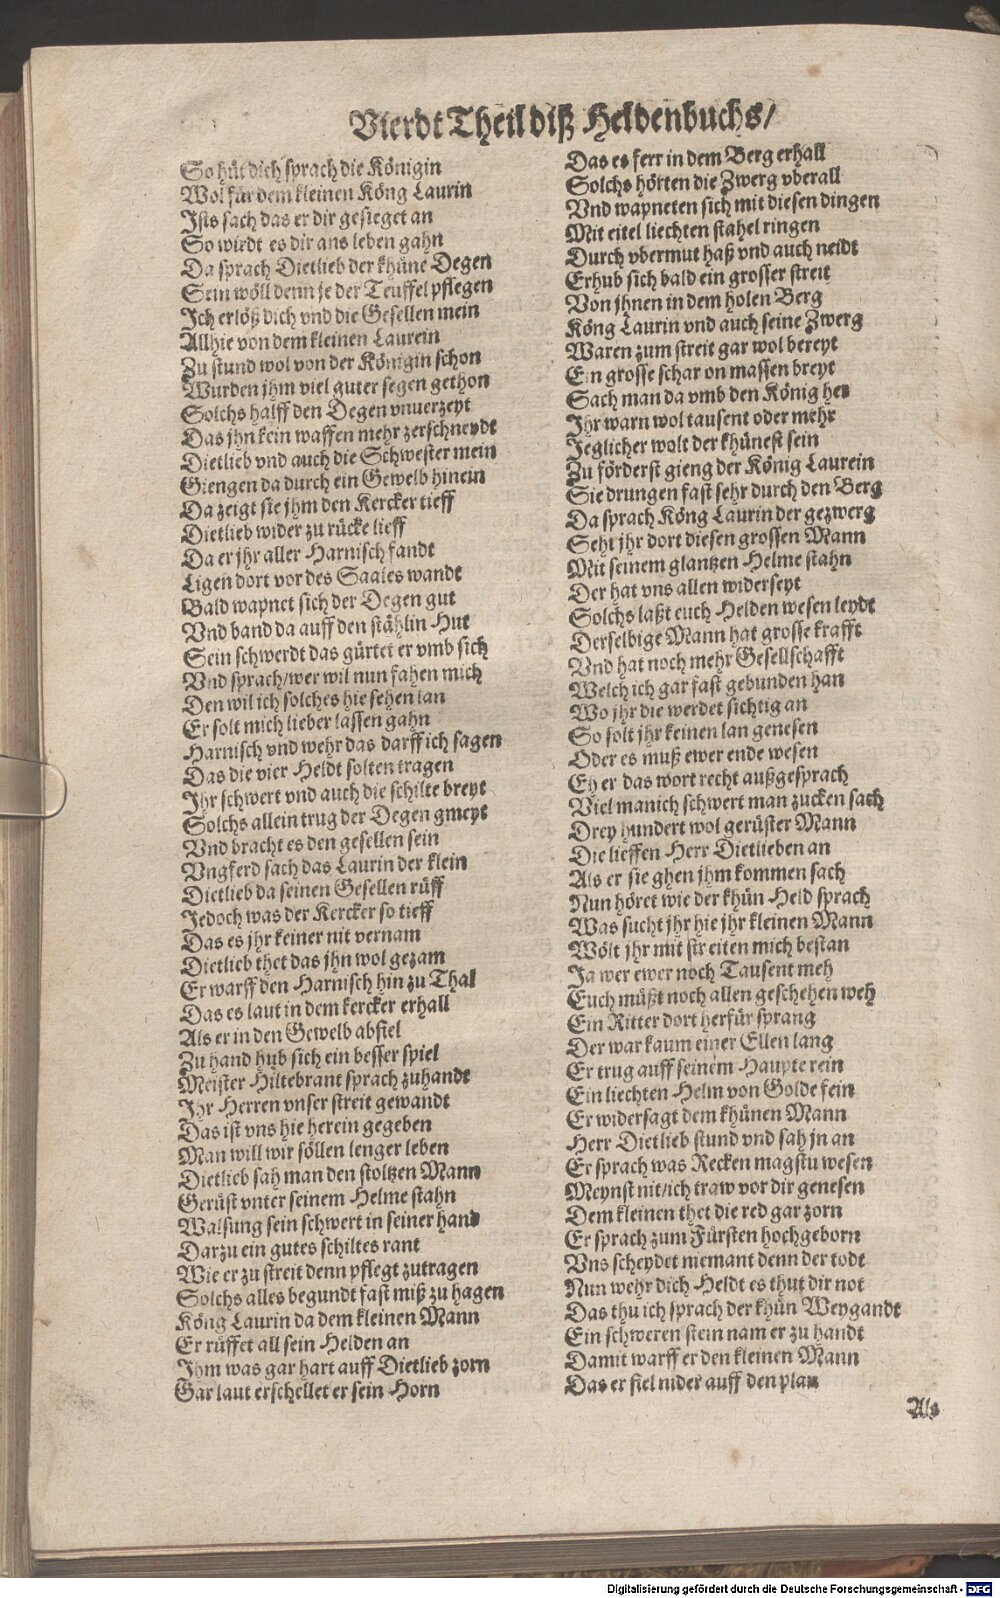 Vierdt Theil diß Heldenbuchs/
So hüt dich sprach die Königin
Wol für dem kleinen Köng Laurin
Ists sach das er dir gesieget an
So wirdt es dir ans leben gahn
Da sprach Dietlieb der khüne Degen
Sein wöll denn je der Teuffel pflegen
Ich erlöß dich vnd die Gesellen mein
Allhie von dem kleinen Laurein
Zu stund wol von der Königin schon
Wurden jhm viel guter segen gethon
Solchs halff den Degen vnuerzeyt
Das jhn kein waffen mehr zerschneydt
Dietlieb vnd auch die Schwester mein
Giengen da durch ein Gewelb hinein
Da zeigt sie jhm den Kercker tieff
Dietlieb wider zu rücke lieff
Da er jhr aller Harnisch fandt
Ligen dort vor des Saales wandt
Bald wapnet sich der Degen gut
Vnd band da auff den stählin Hut
Sein schwerdt das gürtet er vmb sich
Vnd sprach/wer wil nun fahen mich
Den wil ich solches hie sehen lan
Er solt mich lieber lassen gahn
Harnisch vnd wehr das darff ich sagen
Das die vier Heldt solten tragen
Ihr schwert vnd auch die schilte breyt
Solchs allein trug der Degen gmeyt
Vnd bracht es den gesellen sein
Vngferd sach das Laurin der klein
Dietlieb da seinen Gesellen rüff
Jedoch was der Kercker so tieff
Das es jhr keiner nit vernam
Dietlieb thet das jhn wol gezam
Er warff den Harnisch hin zu Thal
Das es laut in dem kercker erhall
Als er in den Gewelb abfiel
Zu hand hub sich ein besser spiel
Meister Hiltebrant sprach zuhandt
Ihr Herren vnser streit gewandt
Das ist vns hie herein gegeben
Man will wir söllen lenger leben
Dietlieb sah man den stoltzen Mann
Gerüst vnter seinem Helme stahn
Walsung sein schwert in seiner hand
Darzu ein gutes schiltes rant
Wie er zu streit denn pflegt zutragen
Solchs alles begundt fast miß zu hagen
Köng Laurin da dem kleinen Mann
Er rüffet all sein Helden an
Ihm was gar hart auff Dietlieb zorn
Gar laut erschellet er sein Horn
Das es ferr in dem Berg erhall
Solchs hörten die Zwerg vberall
Vnd wapneten sich mit diesen dingen
Mit eitel liechten stahel ringen
Durch vbermut haß vnd auch neidt
Erhub sich bald ein grosser streit
Von jhnen in dem holen Berg
Köng Laurin vnd auch seine Zwerg
Waren zum streit gar wol bereyt
Ein grosse schar on massen breyt
Sach man da vmb den König her
Ihr warn wol tausent oder mehr
Jeglicher wolt der khünest sein
Zu förderst gieng der König Laurein
Sie drungen fast sehr durch den Berg
Da sprach Köng Laurin der gezwerg
Seht jhr dort diesen grossen Mann
Mit seinem glantzen Helme stahn
Der hat vns allen widerseyt
Solchs laßt euch Helden wesen leydt
Derselbige Mann hat grosse krafft
Vnd hat noch mehr Gesellschafft
Welch ich gar fast gebunden han
Wo jhr die werdet sichtig an
So solt jhr keinen lan genesen
Oder es muß ewer ende wesen
Ey er das wort recht außgesprach
Viel manich schwert man zucken sach
Drey hundert wol gerüster Mann
Die lieffen Herr Dietlieben an
Als er sie ghen jhm kommen sach
Nun höret wie der khün Held sprach
Was sucht jhr hie jhr kleinen Mann
Wölt jhr mit streiten mich bestan
Ja wer ewer noch Tausent meh
Euch müßt noch allen geschehen weh
Ein Ritter dort herfür sprang
Der war kaum einer Ellen lang
Er trug auff seinem Haupte rein
Ein liechten Helm von Golde fein
Er widersagt dem khünen Mann
Herr Dietlieb stund vnd sah jn an
Er sprach was Recken magstu wesen
Meynst nit/ich traw vor dir genesen
Dem kleinen thet die red gar zorn
Er sprach zum Fürsten hochgeborn
Vns scheydet niemant denn der todt
Nun wehr dich Heldt es thut dir not
Das thu ich sprach der khün Weygandt
Ein schweren stein nam er zu handt
Damit warff er den kleinen Mann
Das er fiel nider auff den plan
Als
Digitalisierung gefördert durch die Deutsche Forschungsgemeinschaft - DFG